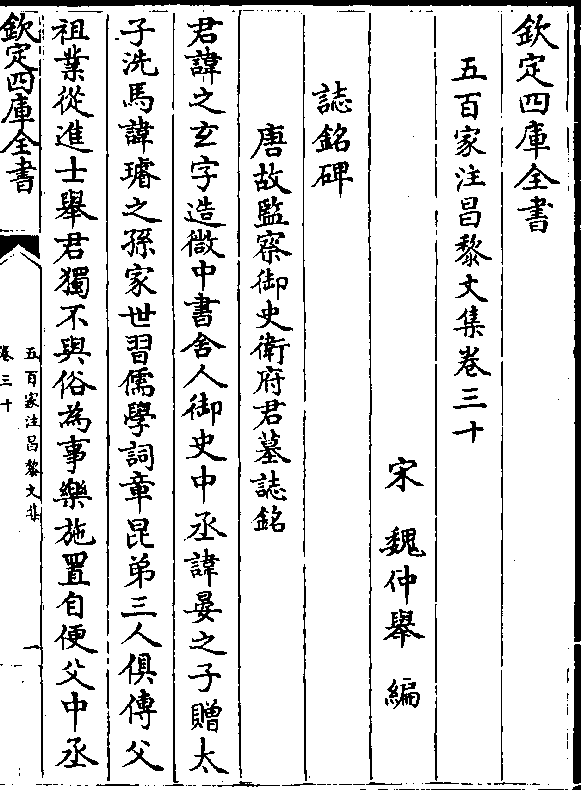 欽定四庫全書
五百家注昌黎文集卷三十
宋 魏仲舉 編
誌銘碑
唐故監察御史衛府君墓誌銘
君諱之玄字造微中書舍人御史中丞諱晏之子贈太
子洗馬諱璿之孫家世習儒學詞章昆弟三人俱傳父
祖業從進士舉君獨不與俗為事樂施置自便父中丞
欽定四庫全書
五百家注昌黎文集
卷三十
一